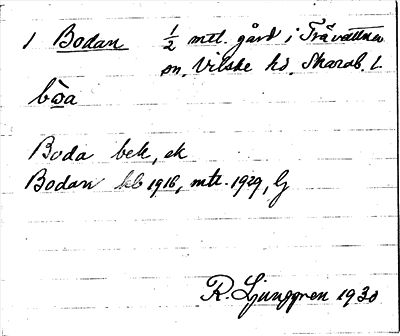 1 Bodan ½ mtl. gård i Trävattna
sn. Vilske hd. Skarab. l.
bòa
Boda bek, ek
Bodan kb 1916, mtr. 1929, Lj
R. Ljunggren 1930